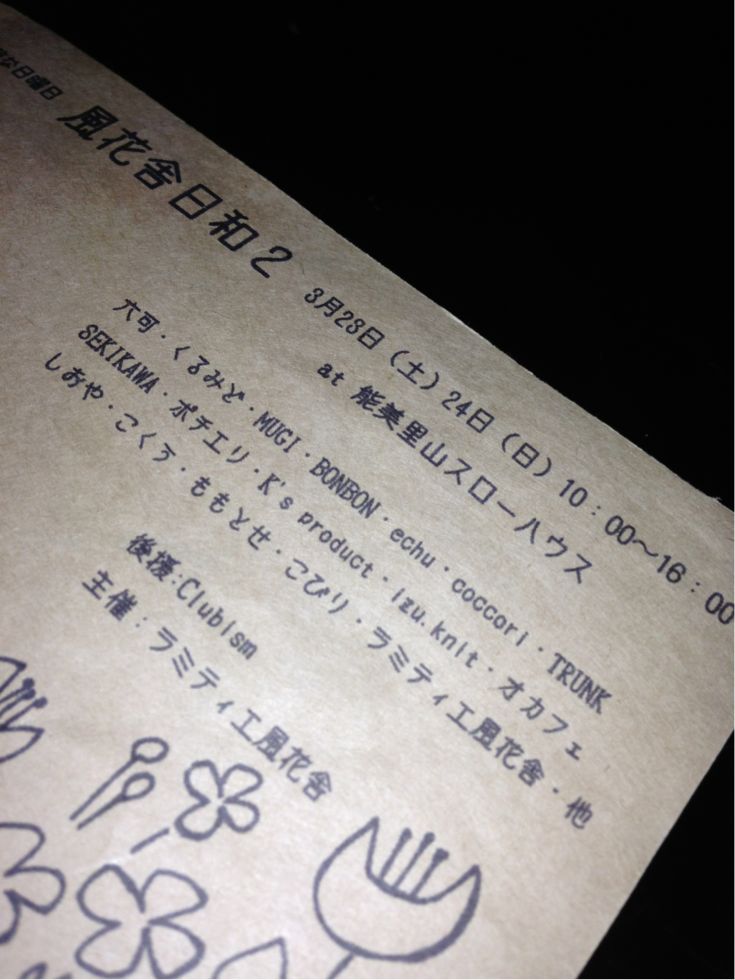 な日曜日
風花舎日和2
3月23日（土）24日（日）10：00～16：00
at 能美里山スローハウス
六可・くるみど・MUGI・BONBON・echu・coccori・TRUNK
SEKIKAWA・ポチエリ・K's product・izu.knit・オカフェ
しおや・こくう・ももとせ・こびり・ラミティ工風花舎・他
後援：Clubism
主催：ラミティ工風花舎